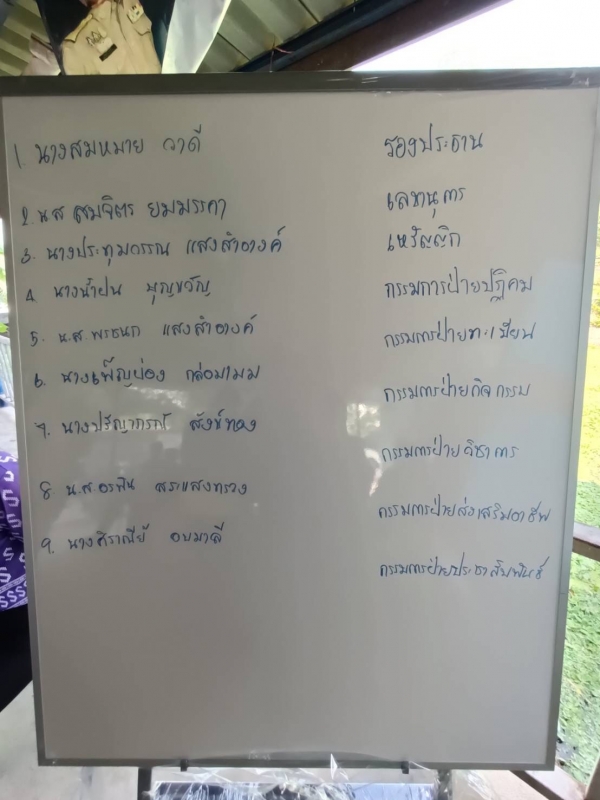 1. นางสมหมาย วาดี รองประธาน
2. น.ส สมจิตร ยมมรคา เลขานุการ
3. นางประทุมวรรณ แสงสำอางค์ เหรัญญิก
4. นางน้ำฝน บุญขวัญ กรรมการฝ่ายปฏิคม
5. น.ส. พรชนก แสงสำอางค์ กรรมการฝ่ายทะเบียน
6. นางเพ็ญผ่อง กล่อมามม กรรมการฝ่ายกิจกรรม
7. นางปริญาภรณ์ สังข์ทอง กรรมการฝ่ายวิชาการ
8 น.ส. อรพิน สระแสงทรวง กรรมการฝ่ายส่งเสริมอาชีพ
9. นางศิราณีย์ อบมาลี กรรมการฝ่ายประชาสัมพันธ์